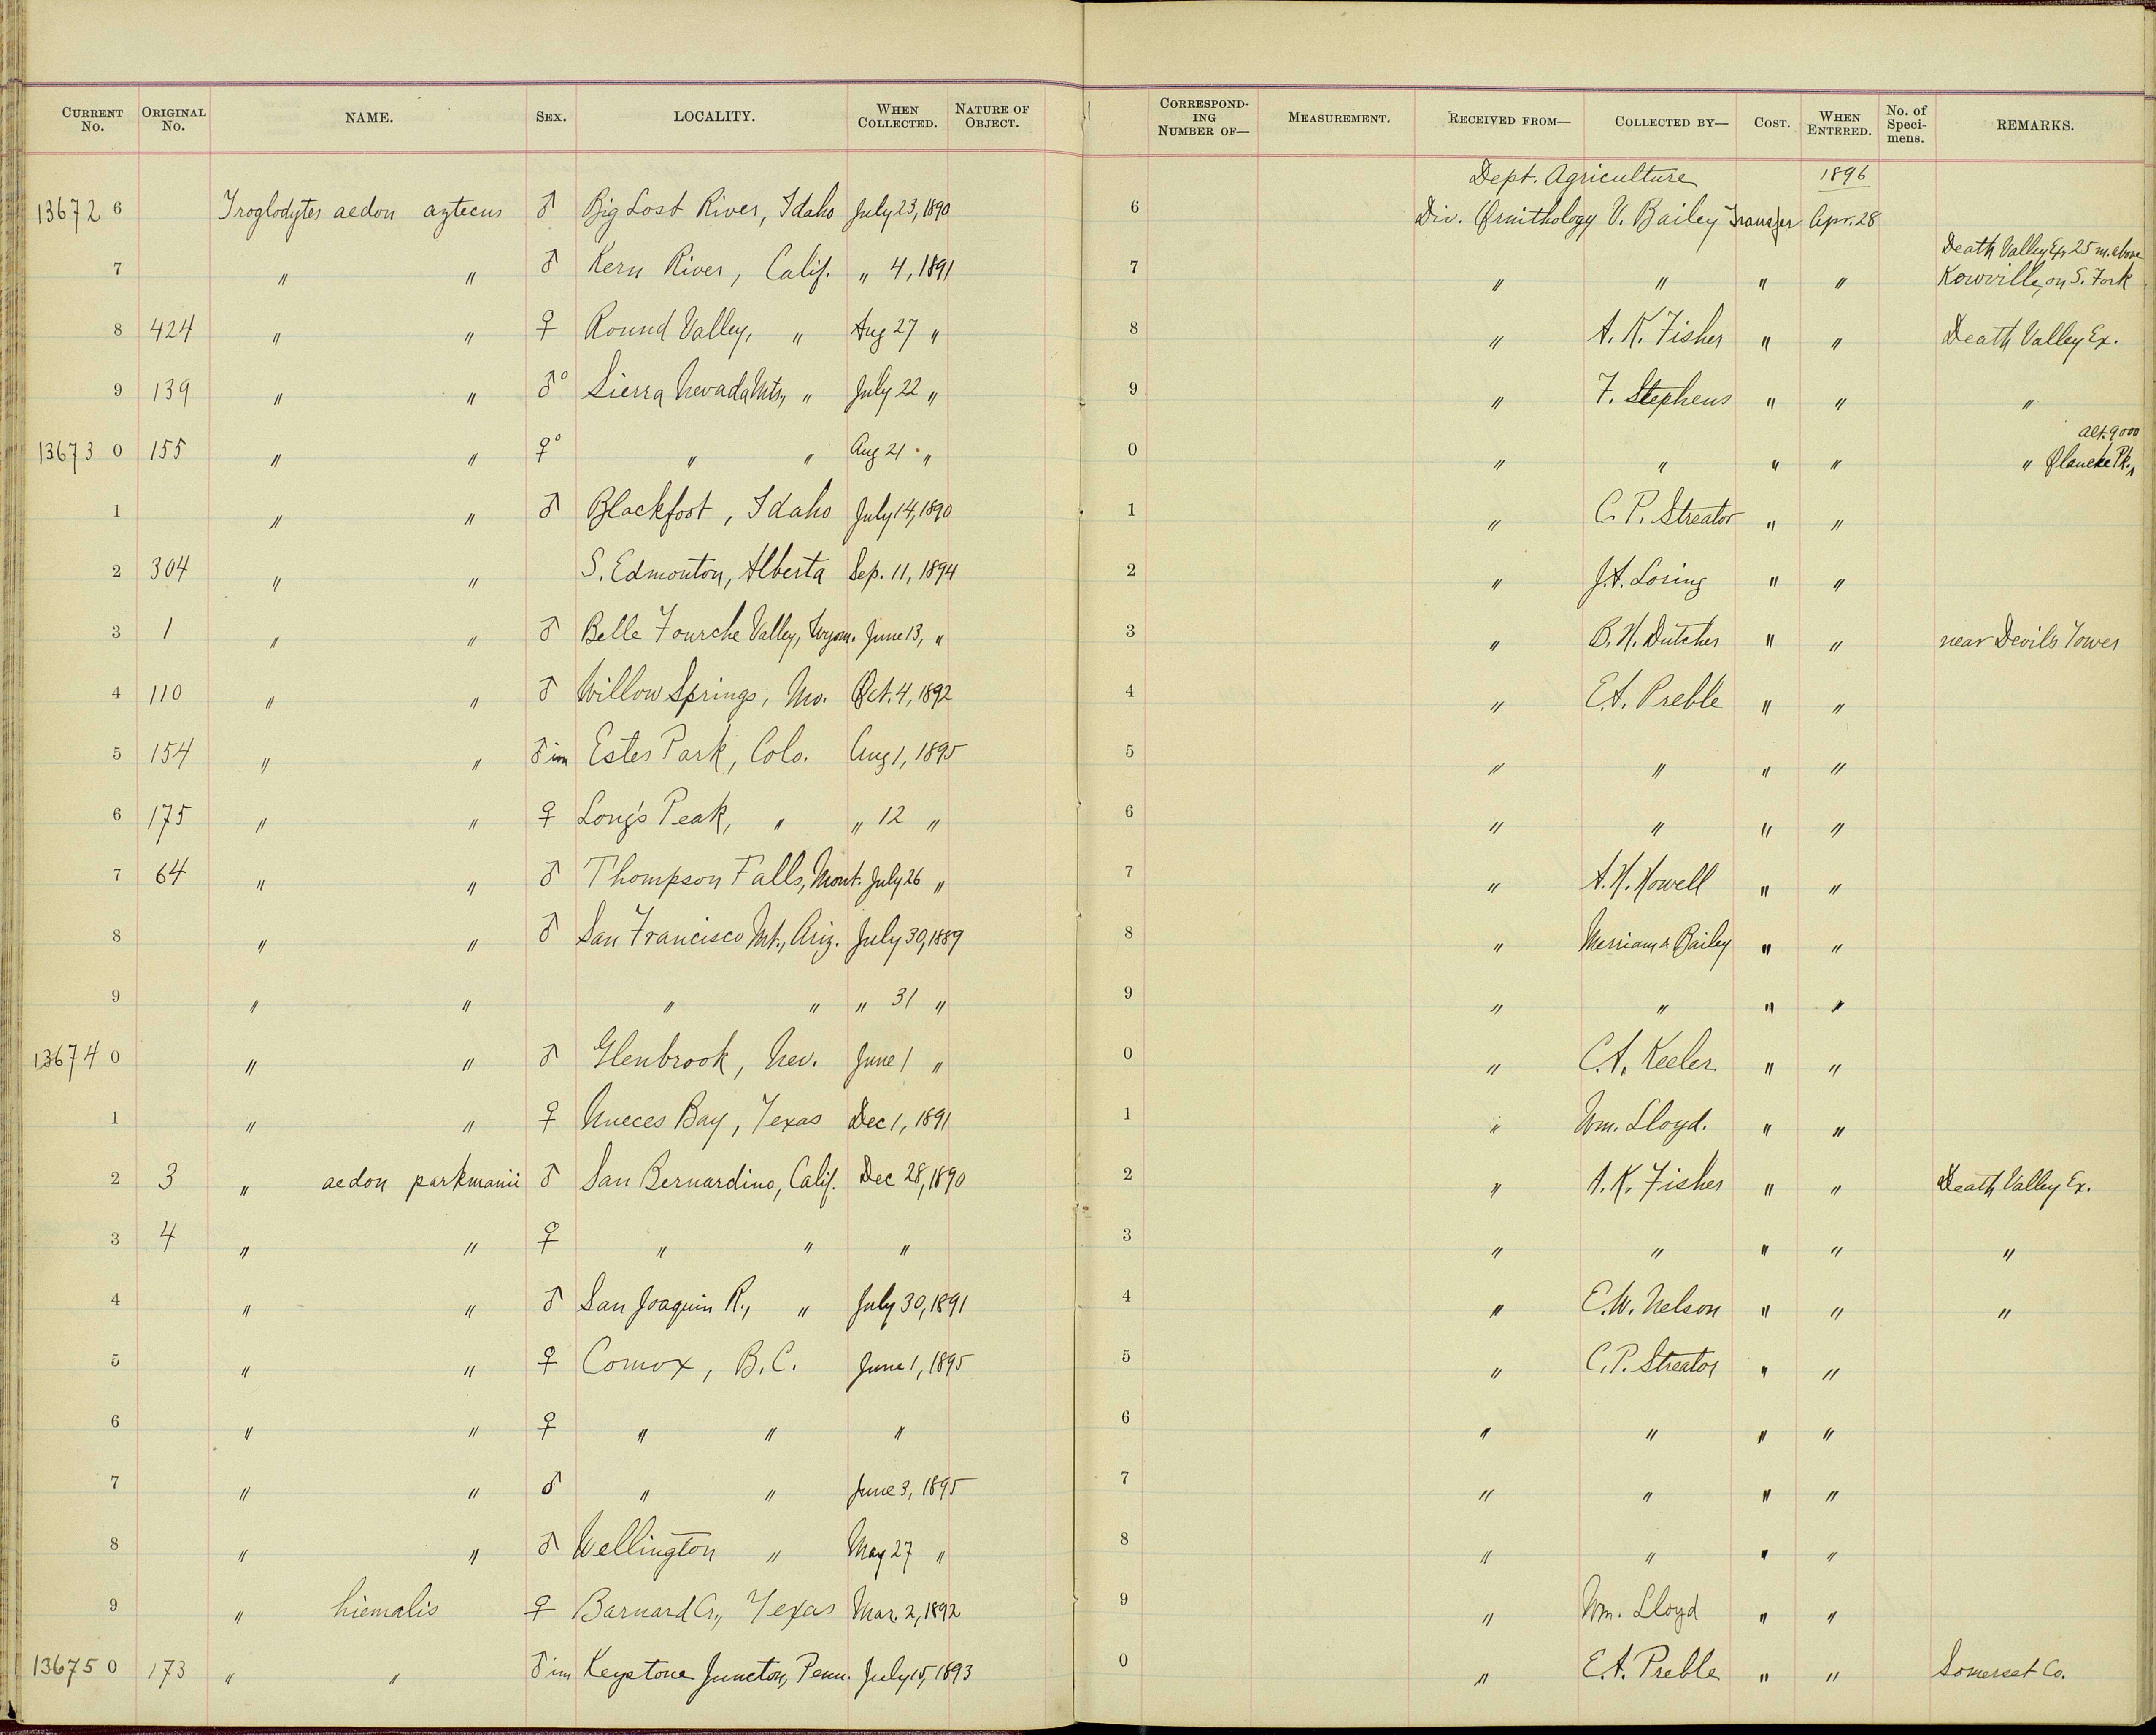 CURRENT No. ORIGINAL No. NAME. SEX. LOCALITY. WHEN COLLECTED. NATURE OF OBJECT. CORRESPONDING NUMBER OF— MEASUREMENT. RECEIVED FROM— COLLECTED BY— COST. WHEN ENTERED. No. of Specimens. REMARKS.
Dept. Agriculture 1896
13672 6 Troglodytes aedon aztecus ♂ Big Lost River, Idaho July 23, 1890 6 Div. Ornithology V. Bailey Transfer Apr. 28
Death Valley Ex. 25 m. above
7 " " ♂ Kern River, Calif. " 4, 1891 7 " " " " on S. Fork
8 424 " " ♀ Round Valley, " Aug 27 " 8 " A. K. Fisher " " Death Valley Ex.
9 139 " " ♂° Sierra Nevada Mts., " July 22 " 9 " F. Stephens " " "
alt. 9000
13673 0 155 " " ♀° " " Aug 21 " 0 " " " " " Olancha Pk.
1 " " ♂ Blackfoot, Idaho July 14, 1890 1 " C. P. Streator " "
2 304 " " S. Edmonton, Alberta Sep. 11, 1894 2 " J. A. Loring " "
3 1 " " ♂ Belle Fourche Valley, Wyom. June 13, " 3 " B. H. Dutcher " " near Devils Tower
4 110 " " ♂ Willow Springs, Mo. Oct. 4, 1892 4 " E. A. Preble " "
5 154 " " ♂ im Estes Park, Colo. Aug 1, 1895 5 " " " "
6 175 " " ♀ Long's Peak, " " 12 " 6 " " " "
7 64 " " ♂ Thompson Falls, Mont. July 26 " 7 " A. H. Howell " "
8 " " ♂ San Francisco Mt., Ariz. July 30, 1889 8 " Merriam & Bailey " "
9 " " " " " 31 " 9 " " " "
13674 0 " " ♂ Glenbrook, Nev. June 1 " 0 " C. A. Keeler " "
1 " " ♀ Nueces Bay, Texas Dec 1, 1891 1 " Wm. Lloyd. " "
2 3 " aedon parkmanii ♂ San Bernardino, Calif. Dec 28, 1890 2 " A. K. Fisher " " Death Valley Ex.
3 4 " " ♀ " " " 3 " " " " "
4 " " ♂ San Joaquin R., " July 30, 1891 4 " E. W. Nelson " " "
5 " " ♀ Comox, B.C. June 1, 1895 5 " C. P. Streator " "
6 " " ♀ " " " 6 " " " "
7 " " ♂ " " June 3, 1895 7 " " " "
8 " " ♂ Wellington " May 27 " 8 " " " "
9 " hiemalis ♀ Barnard Cr., Texas Mar. 2, 1892 9 " Wm. Lloyd " "
13675 0 173 " " ♂ im Keystone Juncton, Penn. July 15, 1893 0 " E. A. Preble " " Somerset Co.